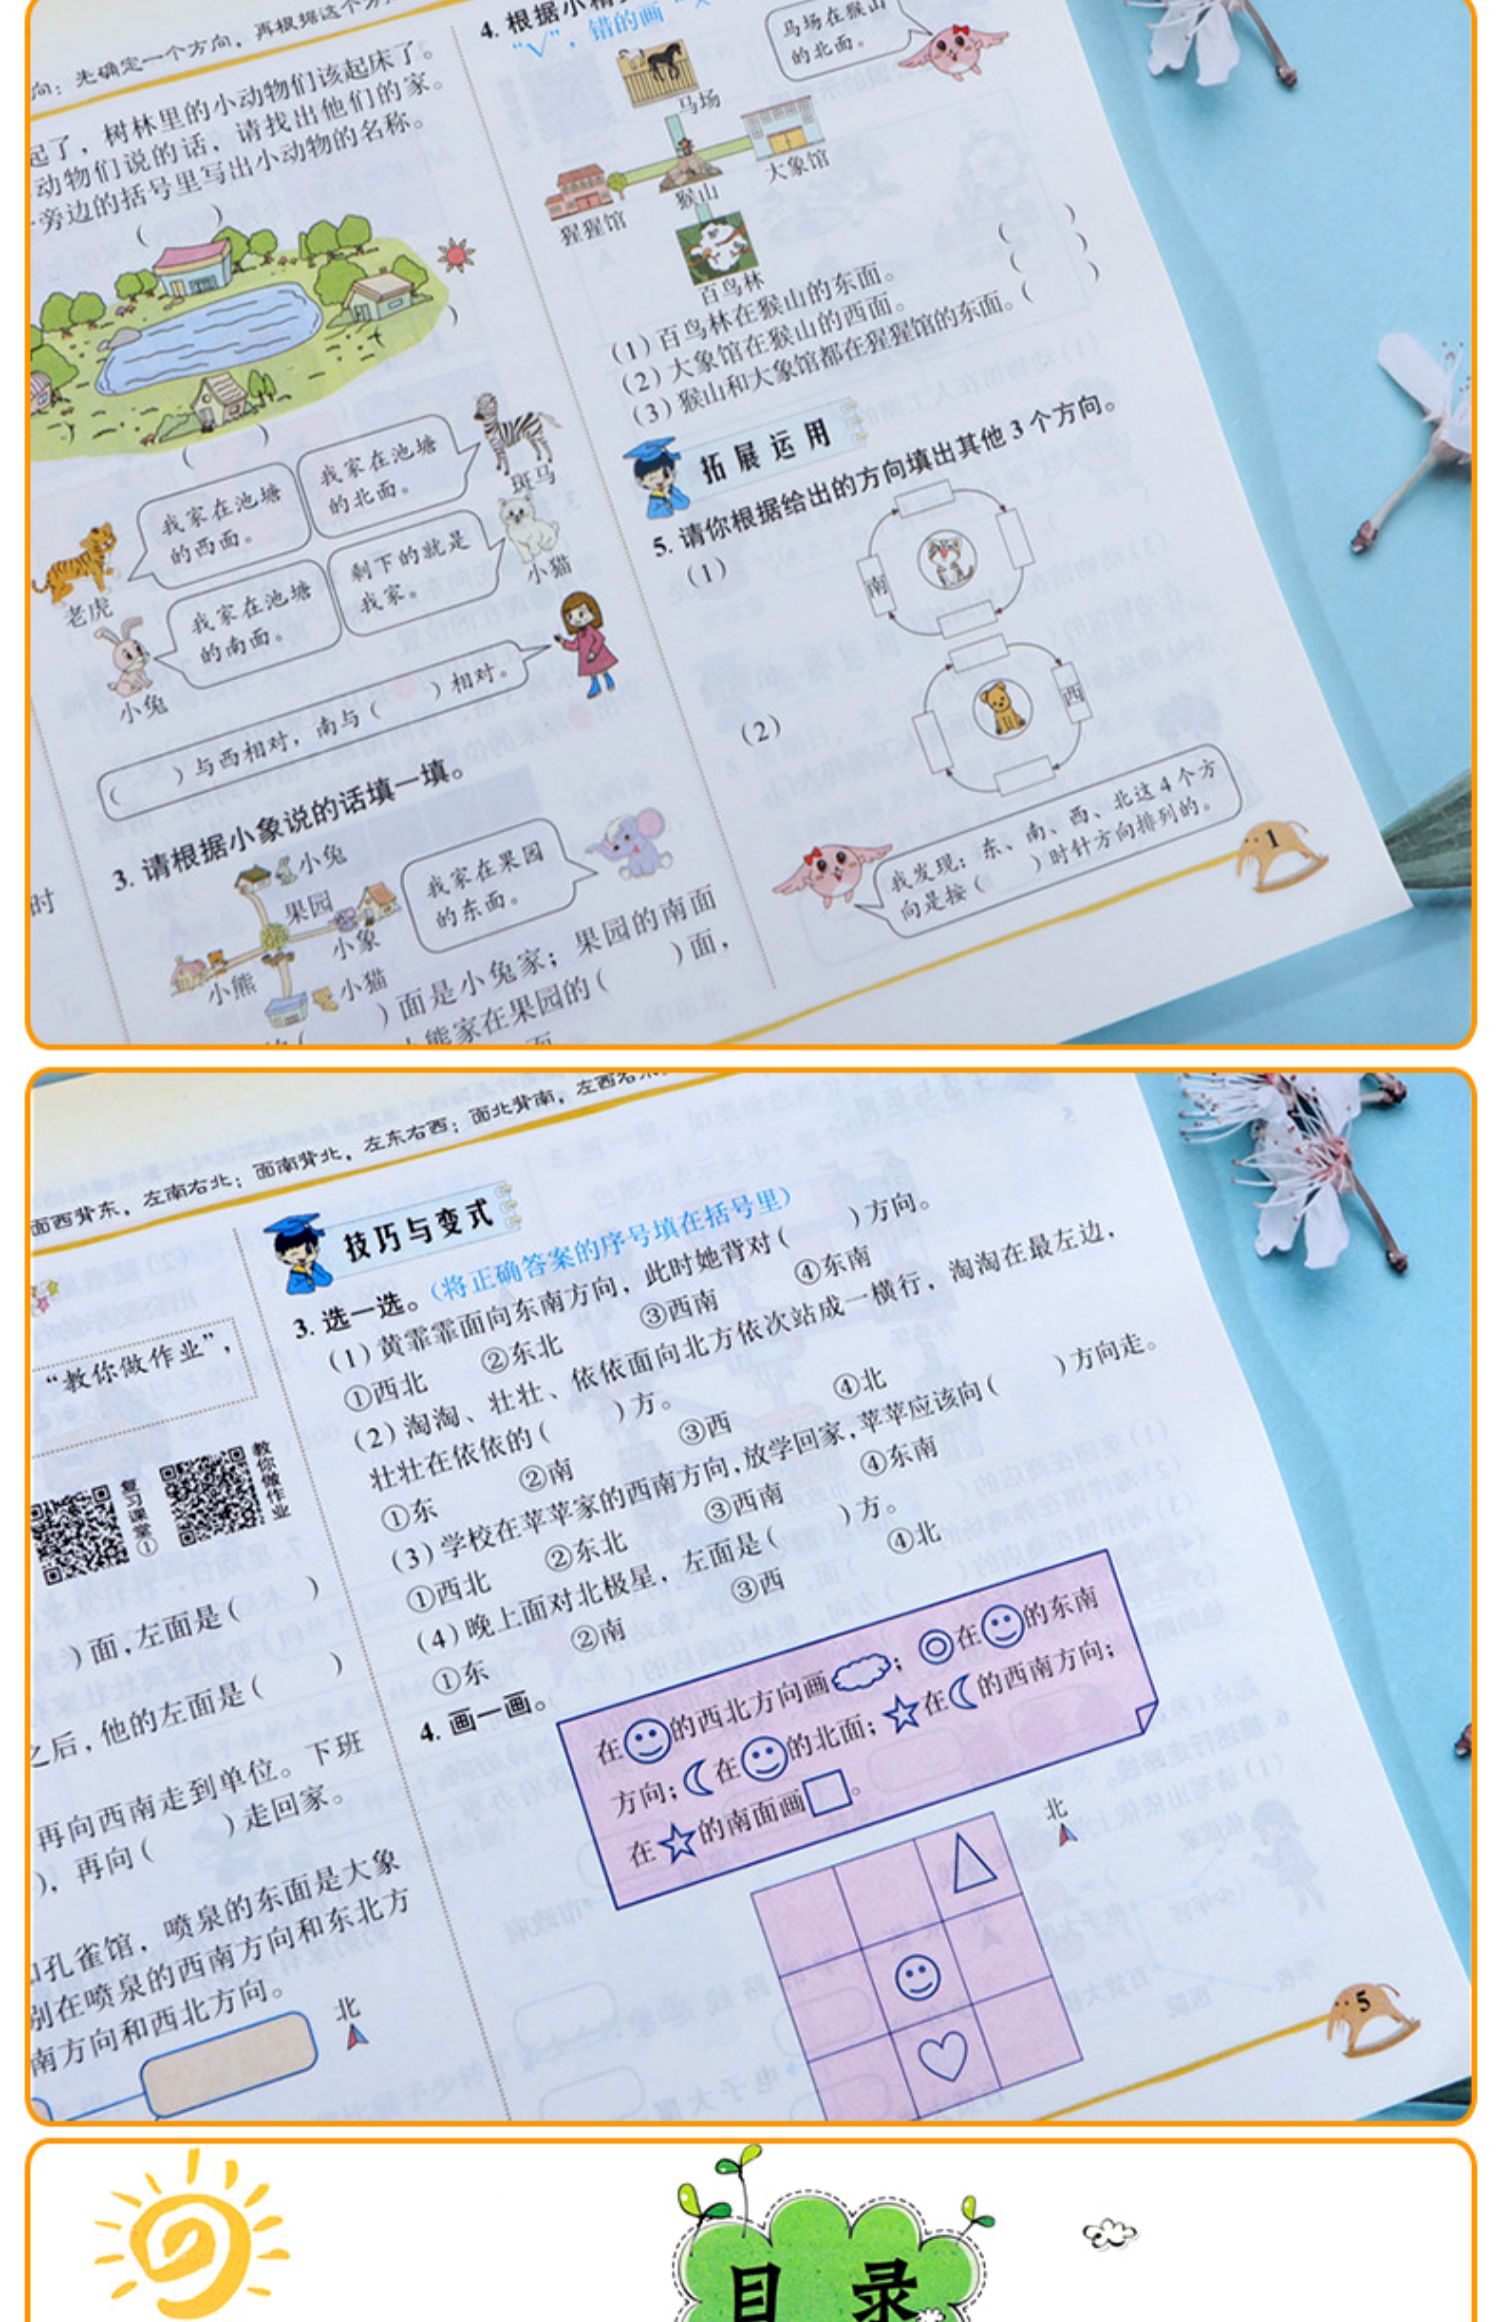 向：先确定一个方向，再根据这个方
起了，树林里的小动物们该起床了。
动物们说的话，请找出他们的家。
旁边的括号里写出小动物的名称。
(　　)
(　　)
我家在池塘
的西面。
我家在池塘
的北面。
斑马
老虎
我家在池塘
的南面。
剩下的就是
我家。
小猫
小兔
(　　)与西相对，南与(　　)相对。
3. 请根据小象说的话填一填。
小兔
果园
小象
小熊
小猫
我家在果园
的东面。
(　　)面是小兔家；果园的南面
熊家在果园的(　　)面，
时
4. 根据小精
“√”，错的画“×
马场在猴山
的北面。
马场
大象馆
猴山
猩猩馆
百鸟林
(1)百鸟林在猴山的东面。(　　)
(2)大象馆在猴山的西面。(　　)
(3)猴山和大象馆都在猩猩馆的东面。(　　)
拓展运用
5. 请你根据给出的方向填出其他3个方向。
(1)
南
(2)
西
我发现：东、南、西、北这4个方
向是按(　　)时针方向排列的。
1
面西背东，左南右北；面南背北，左东右西；面北背南，左西右
“教你做作业”，
复习课堂①
教你做作业
)面，左面是(　　)
之后，他的左面是(　　)
再向西南走到单位。下班
)，再向(　　)走回家。
孔雀馆，喷泉的东面是大象
别在喷泉的西南方向和东北方
南方向和西北方向。
北
技巧与变式
3. 选一选。(将正确答案的序号填在括号里)
(1)黄霏霏面向东南方向，此时她背对(　　)方向。
①西北　②东北　③西南　④东南
(2)淘淘、壮壮、依依面向北方依次站成一横行，淘淘在最左边，
壮壮在依依的(　　)方。
①东　②南　③西　④北
(3)学校在苹苹家的西南方向，放学回家，苹苹应该向(　　)方向走。
①西北　②东北　③西南　④东南
(4)晚上面对北极星，左面是(　　)方。
①东　②南　③西　④北
4. 画一画。
在的西北方向画；在的东南
方向；在的北面；在的西南方向；
在的南面画。
北
5
目录